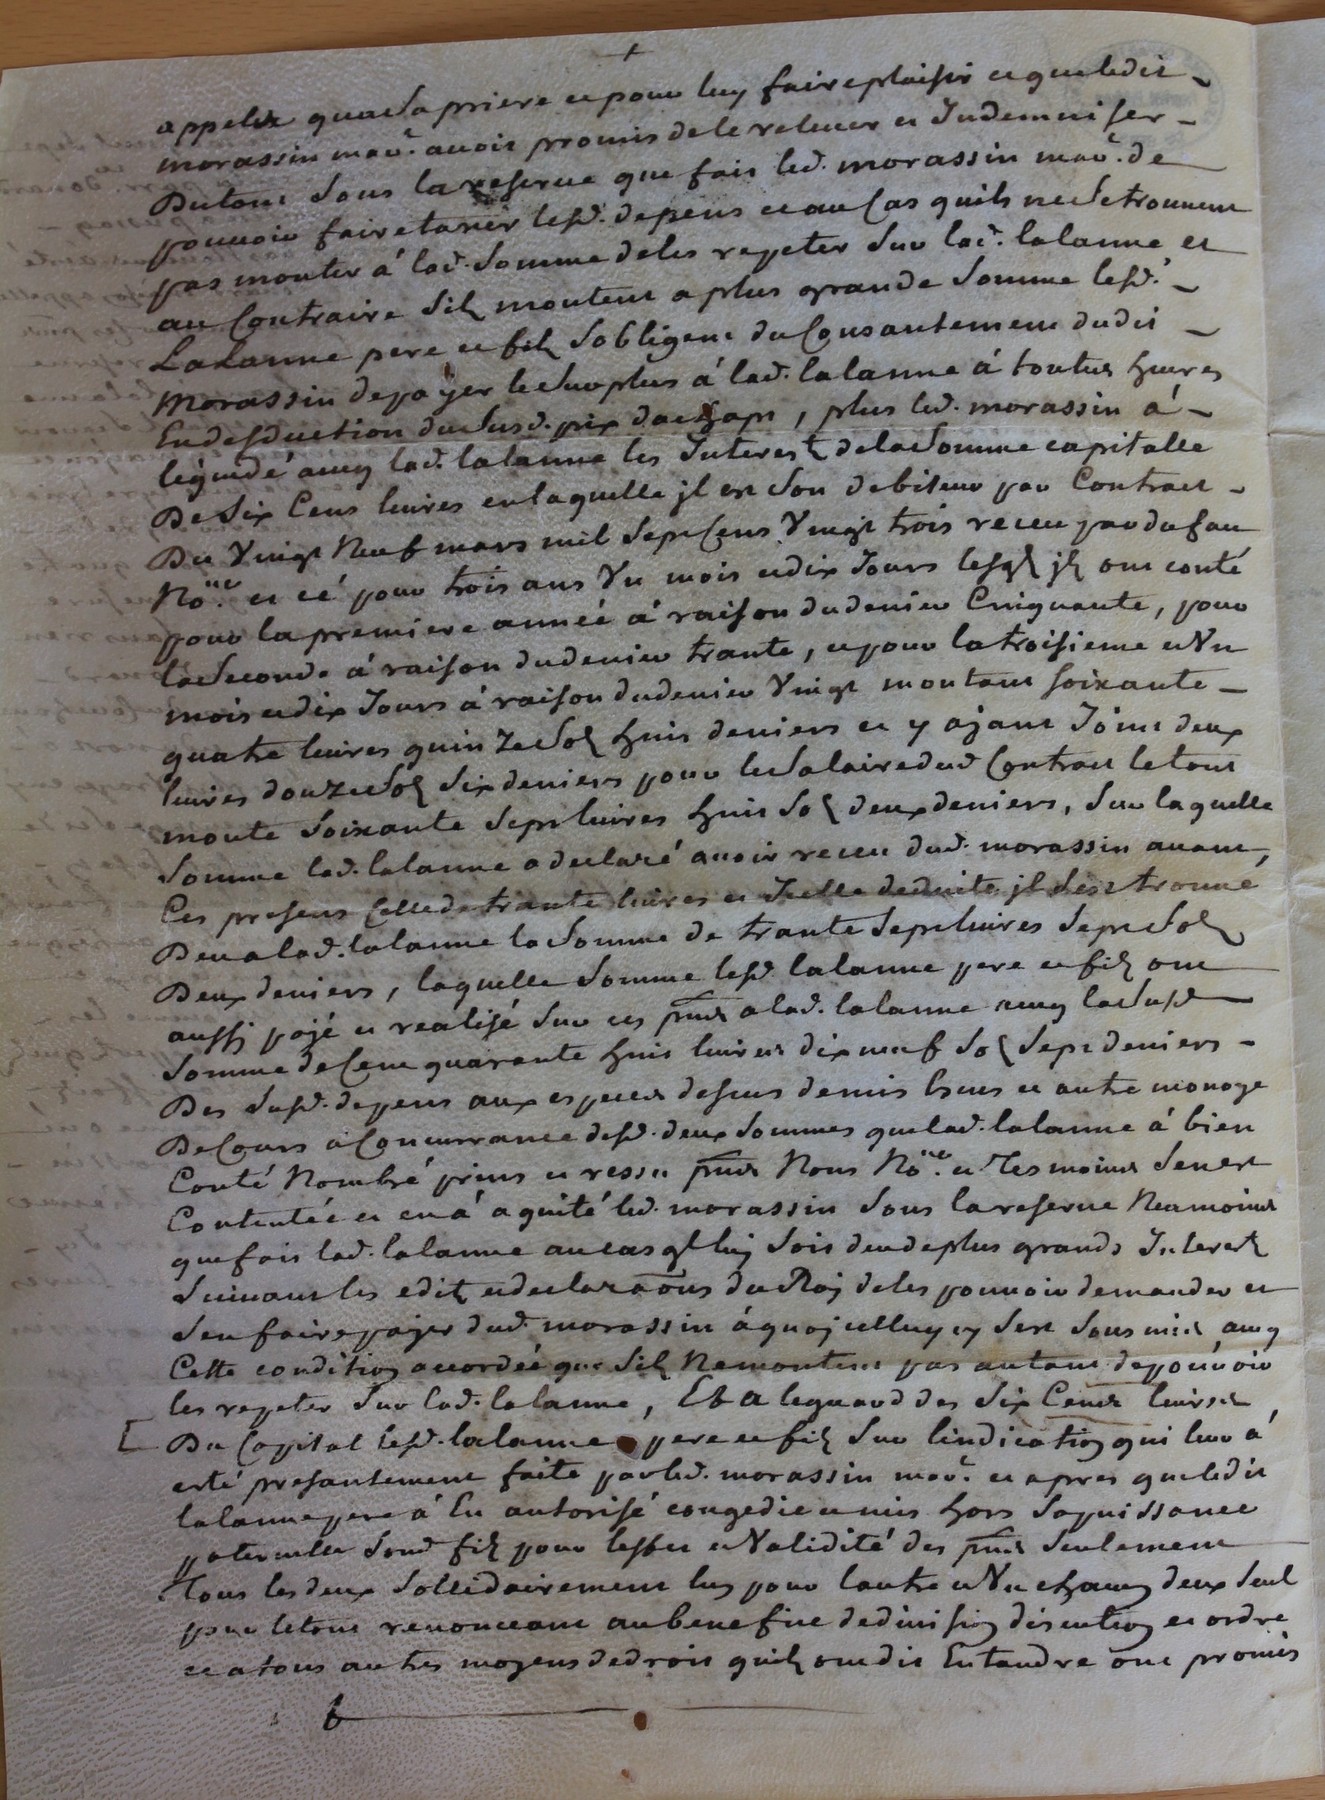 appeller qua sa priere et pour luy faire plaisir et que ledit
morassin mar. avoit promis de le relever et Indemniser
Du tout sous la reserve que fait led. morassin mar. de
pouvoir faire taxer lesd. depens et au Cas quils ne se trouvent
pas monter á lad. somme de les repeter sur lad. lalanne et
au Contraire sils montent a plus grande somme lesd.
Lalanne pere et fils sobligent du Consantement dudit
Morassin de payer le surplus á lad. lalanne á toutes heures
En desduction du susd. prix dachapt, plus led. morassin á
leguidé avec lad. lalanne les Interests de la somme capitalle
De six Cens livres en laquelle jl est son debiteur par Contract
Du Vingt Neuf mars mil sept Cens Vingt trois receu par dufau
No.re et cé pour trois ans Vn mois et dix Jours lesqls jls ont conté
pour la premiere année á raison du denier Cinquante, pour
la seconde á raison du denier trante, et pour la troisieme et Vn
mois et dix Jours á raison du denier Vingt montant soixante
quatre livres quinze sols huit deniers et y ajant Joint deux
livres douze sols six deniers pour le salaire dud. Contract le tout
monte soixante sept livres huit sols deux deniers, sur laquelle
somme lad. lalanne a declaré avoir receu dud. morassin avant
Ces presens Celle de trante livres et Icelle deduite jl sest trouvé
Deu a lad. lalanne la somme de trante sept livres sept sols
Deux deniers, laquelle somme lesd. lalanne pere et fils ont
aussi pajé et realisé sur ces pntes a lad. lalanne avec la susd.
somme de Cent quarante huit livres dix neuf sols sept deniers
Des susd. depens aux especes descus demis Escus et autre monoye
De Cours a Concurrance desd. deux sommes que lad. lalanne á bien
Conté Nombré prins et ressu pntes Nous No.re et Tesmoins sen est
Contentée et en á aquité led. morassin sous la reserve Neamoins
que fait lad. lalanne au cas ql luy soit deu de plus grands Interests
suivant les edits et declaraons du Roj de les pouvoir demander et
sen faire payer dud. morassin á quoj celluy cy sest sousmis avec
Cette condition accordée que sils Ne montent pas autant de pouvoir
les repeter sur lad. lalanne, Et a leguard des six Cents livres
Du Capital lesd. lalanne pere et fils sur lindication qui leur á
esté presantement faite par led. morassin mar. et apres que ledit
lalanne pere á Eu autorisé congedié et mis hors sa puissance
paternelle sond. fils pour leffet et Validité des pntes seulement
Tous les deux sollidairement lun pour lautre et Vn chacun deux seul
pour le tout renonceant au benefice de division discution et ordre
et a tous autres moyens de droit quils ont dit Entandre ont promis